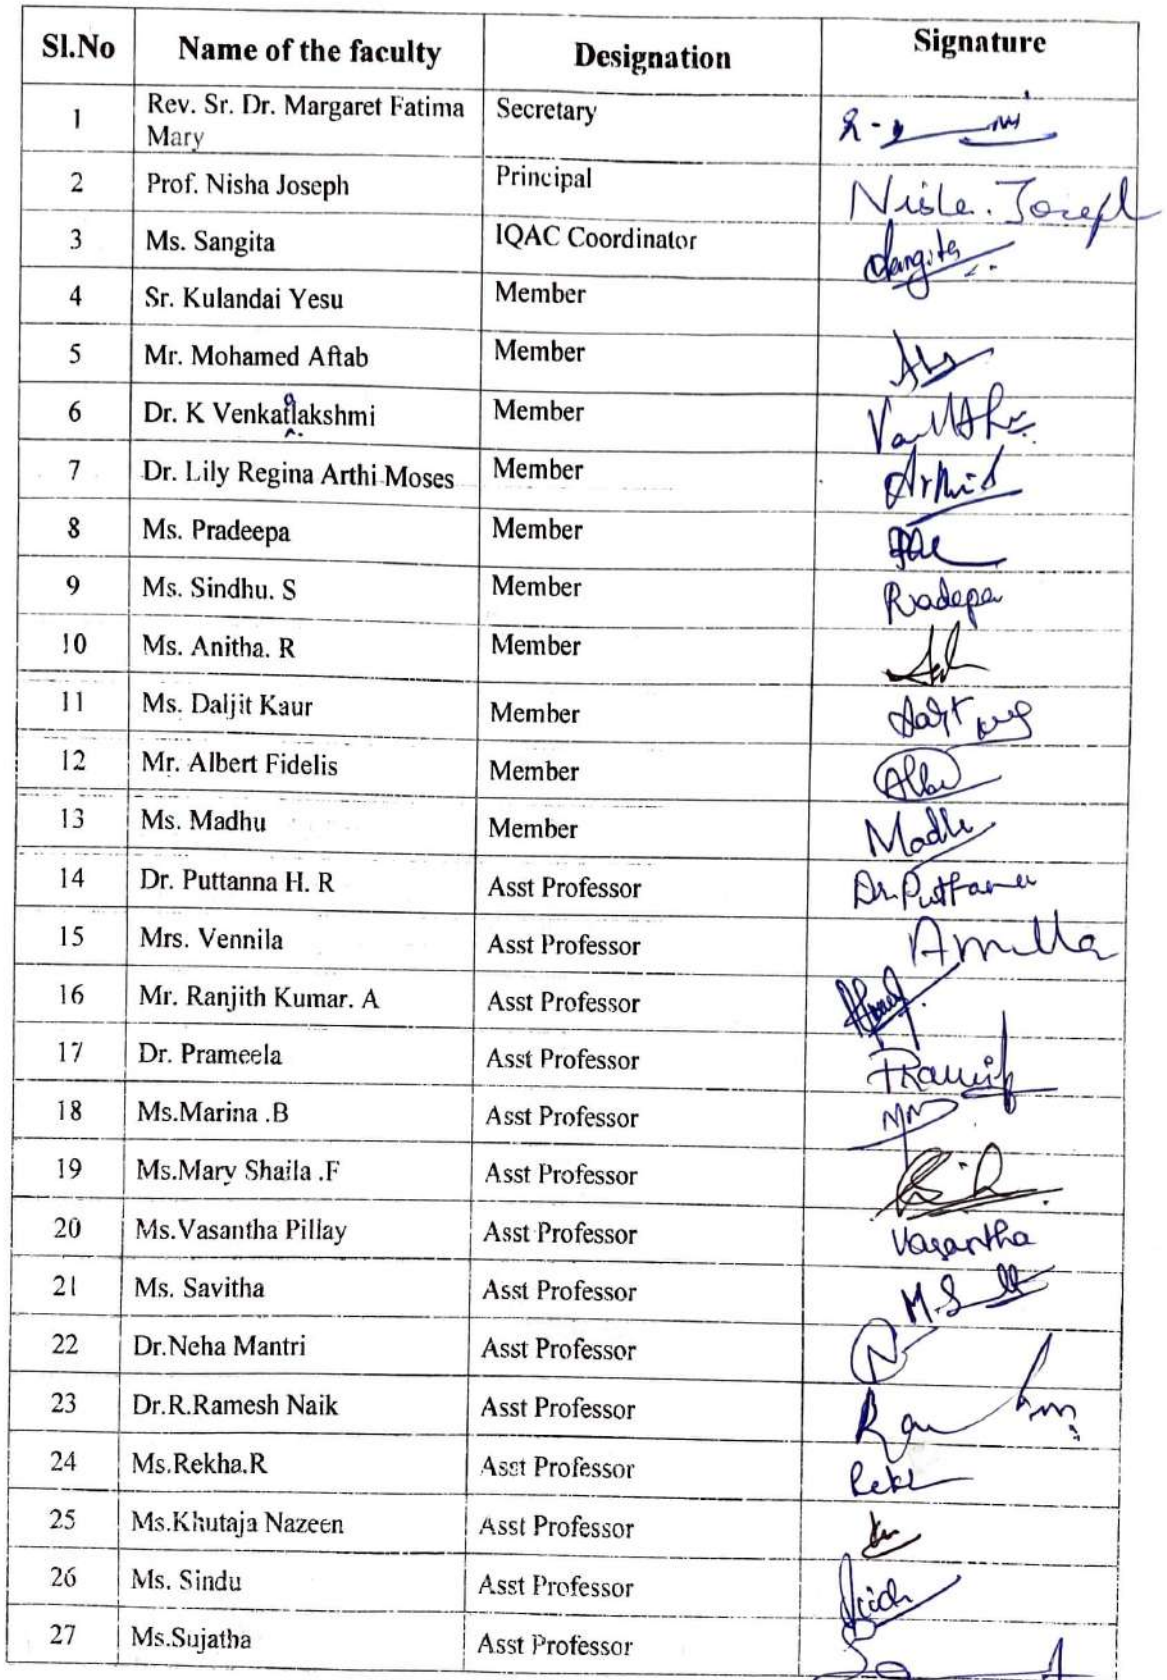 Sl.No Name of the faculty Designation Signature
1 Rev. Sr. Dr. Margaret Fatima Secretary
Mary
2 Prof. Nisha Joseph Principal Nisha. Joseph
3 Ms. Sangita IQAC Coordinator Sangita
4 Sr. Kulandai Yesu Member
5 Mr. Mohamed Aftab Member
6 Dr. K Venkatlakshmi Member
7 Dr. Lily Regina Arthi Moses Member
8 Ms. Pradeepa Member
9 Ms. Sindhu. S Member Pradeepa
10 Ms. Anitha. R Member
11 Ms. Daljit Kaur Member
12 Mr. Albert Fidelis Member
13 Ms. Madhu Member Madhu
14 Dr. Puttanna H. R Asst Professor Dr. Puttanna
15 Mrs. Vennila Asst Professor
16 Mr. Ranjith Kumar. A Asst Professor
17 Dr. Prameela Asst Professor
18 Ms.Marina .B Asst Professor
19 Ms.Mary Shaila .F Asst Professor
20 Ms.Vasantha Pillay Asst Professor Vasantha
21 Ms. Savitha Asst Professor
22 Dr.Neha Mantri Asst Professor N
23 Dr.R.Ramesh Naik Asst Professor
24 Ms.Rekha.R Asst Professor
25 Ms.Khutaja Nazeen Asst Professor
26 Ms. Sindu Asst Professor
27 Ms.Sujatha Asst Professor